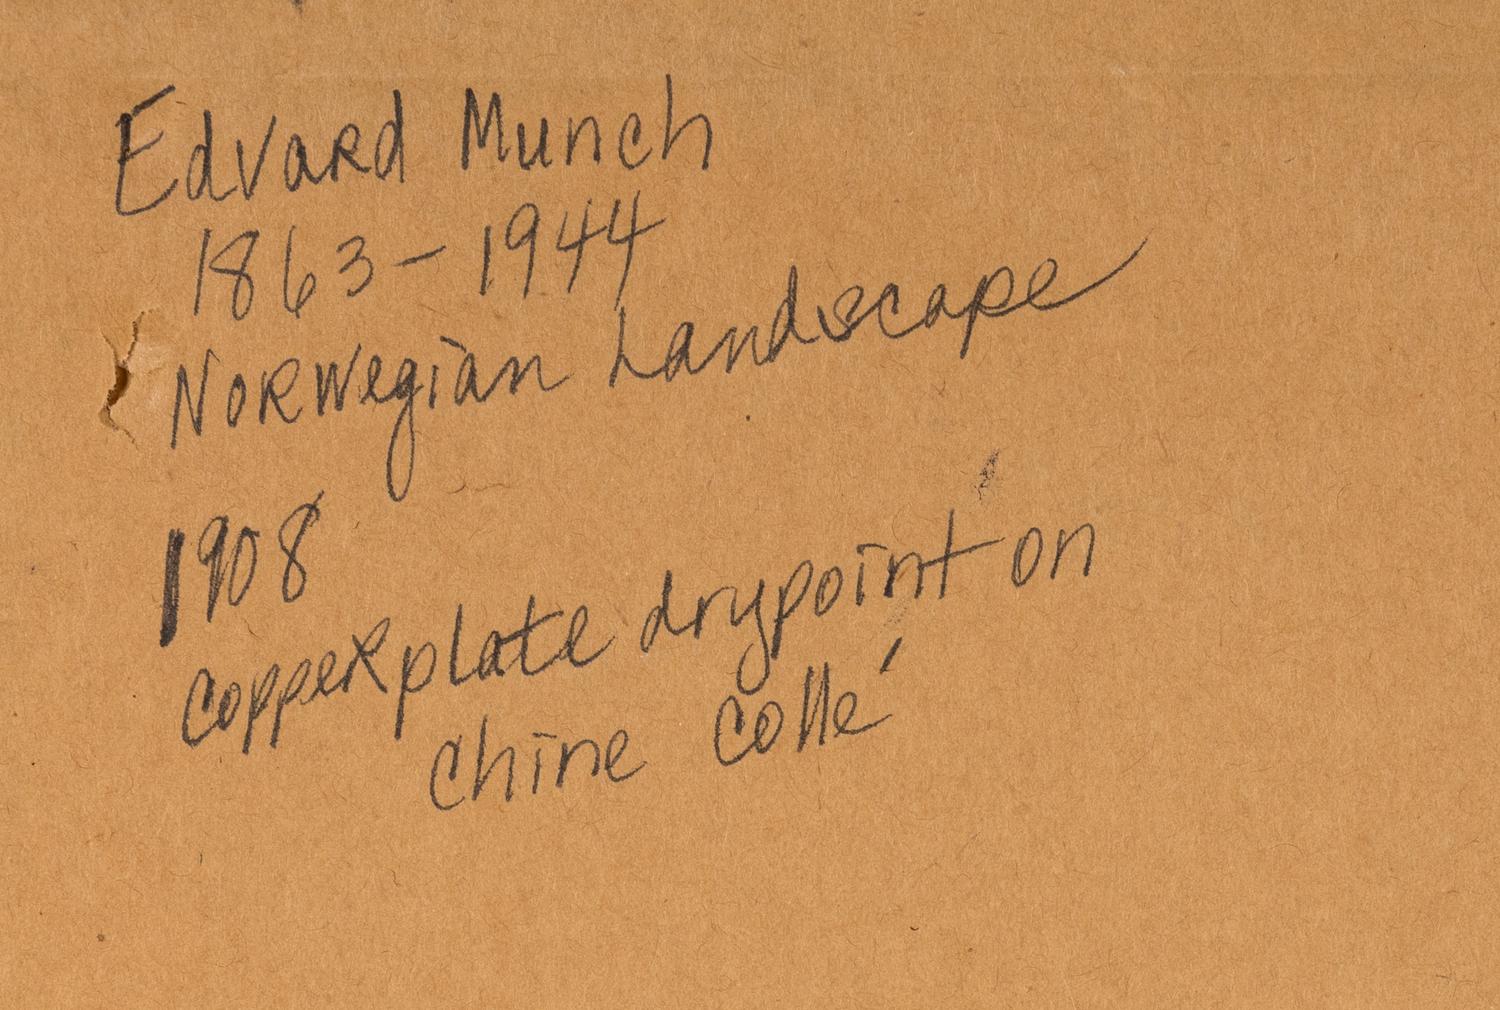 Edvard Munch
1863-1944
Norwegian Landscape
1908
copperplate drypoint on
chine collé